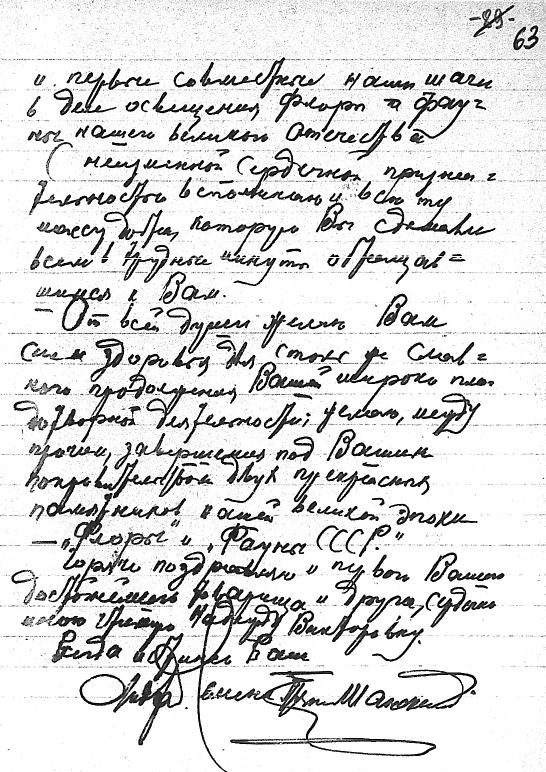 -28-
63
и первые совместные наши шаги
в деле освещения флоры и фау=
ны нашего великого отечества
С неизменной сердечной призна=
тельностью вспоминаю и всю ту
массу добра, которую Вы сделали
всем в трудные минуты обращав=
шимся к Вам.
— От всей души желаю Вам
сил и здоровья для столь же слав=
ного продолжения Вашей широко пло=
дотворной деятельности; желаю, между
прочим, завершения под Вашим
покровительством двух прекрасных
памятников нашей великой эпохи
— „Флоры" и „Фауны СССР."
Горячо поздравляю и первого Вашего
достойнейшего товарища и друга, сердечно
мною чтимую Надежду Викторовну.
Всегда искренно Ваш